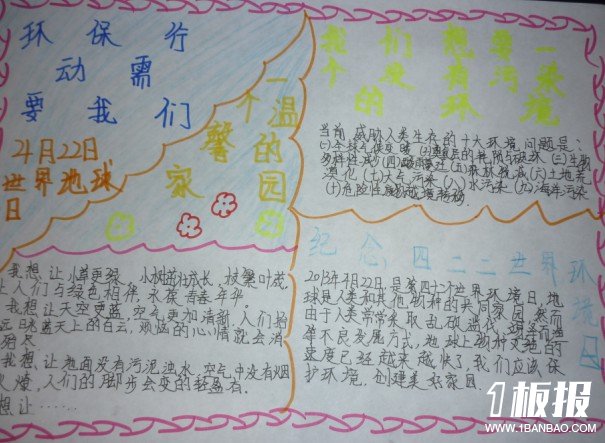 环保行
动需
要我们
一
个温
馨的
家园
4月22日
世界地球
日
我们想要一
个没有污染
的环境
当前,威胁人类生存的十大环境问题是:
(一)全球气候变暖(二)臭氧层的耗损与破坏(三)生物
多样性减少(四)酸雨蔓延(五)森林锐减(六)土地荒
漠化(七)大气污染(八)水污染(九)海洋污染
(十)危险性废物越境转移
纪念四二二世界环
境
日
我想让小草更绿,小树茁壮成长,枝繁叶茂,
让人们与绿色相伴,永葆青春年华
我想让天空更蓝,空气更加清新,人们抬
远日眺蓝天上的白云,烦恼的心情就会消
我想,让地面没有污泥浊水,空气中没有烟
人们的脚步会变的轻盈有
想让……
2013年4月22日,是第四十个世界环境日,地
球是人类和其他物种的共同家园,然而
由于人类常常采取乱砍盗伐、涸泽而渔
等不良发展方式,地球上物种灭绝的
速度已经越来越快了我们应该保
护环境,创建美好家园。
1板报
WWW.1BANBAO.COM